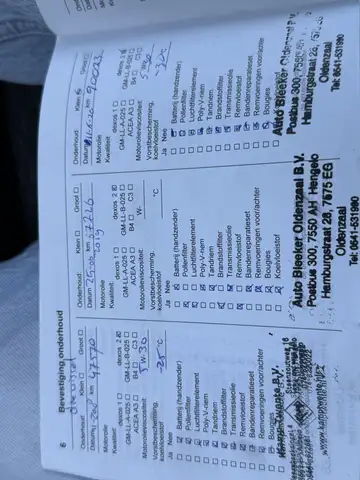 6 Bevestiging onderhoud
Onderhoud: Klein Groot
Datum km 47570
Motorolie
Kwaliteit: dexos 1 dexos 2
GM-LL-A-025 GM-LL-B-025
ACEA A3 B4 C3
Motorolieviscositeit
5 W-30
Vorstbescherming,
koelvloeistof -25 °C
Ja Nee
Batterij (handzender)
Pollenfilter
Luchtfilterelement
Poly-V-riem
Tandriem
Brandstoffilter
Transmissieolie
Remvloeistof
Bandenreparatieset
Remvoeringen voor/achter
Bougies
Koelvloeistof
Onderhoud: Klein Groot
Datum 25.06.2019 km 67226
Motorolie
Kwaliteit: dexos 1 dexos 2
GM-LL-A-025 GM-LL-B-025
ACEA A3 B4 C3
Motorolieviscositeit
W-
Vorstbescherming,
koelvloeistof °C
Ja Nee
Batterij (handzender)
Pollenfilter
Luchtfilterelement
Poly-V-riem
Tandriem
Brandstoffilter
Transmissieolie
Remvloeistof
Bandenreparatieset
Remvoeringen voor/achter
Bougies
Koelvloeistof
Auto Bleeker Oldenzaal B.V.
Postbus 300, 7550 AH Hengelo
Hamburgstraat 28, 7575 EG
Oldenzaal
Tel: 0541-531990
Onderhoud: Klein Groot
Datum km
Motorolie
Kwaliteit: dexos 1 dexos 2
GM-LL-A-025 GM-LL-B-025
ACEA A3 B4 C3
Motorolieviscositeit
5 W-30
Vorstbescherming,
koelvloeistof -30 °C
Ja Nee
Batterij (handzender)
Pollenfilter
Luchtfilterelement
Poly-V-riem
Tandriem
Brandstoffilter
Transmissieolie
Remvloeistof
Bandenreparatieset
Remvoeringen voor/achter
Bougies
Koelvloeistof
Auto Bleeker Oldenzaal B.V.
Postbus 300, 7550
Hamburgstraat 28,
Oldenzaal
Tel: 0541-531990